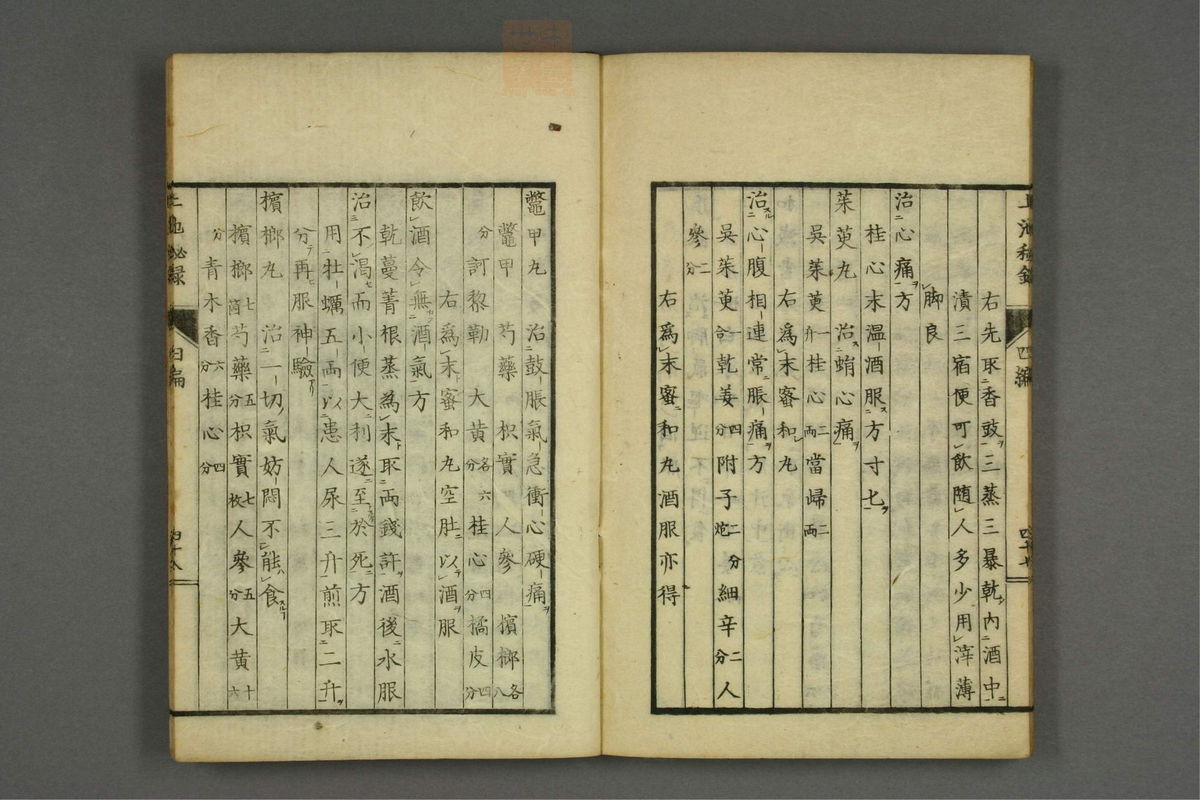 右先取香豉三蒸三暴乾內酒中
漬三宿便可飲随人多少用滓薄
脚良
治心痛方
桂心末温酒服方寸匕
茱萸丸 治蛕心痛
吳茱萸一升桂心二兩當歸二兩
右爲末蜜和丸
治心腹相連常脹痛方
吳茱萸一合乾姜四分附子二分炮細辛二分人
參二分 右爲末蜜和丸酒服亦得
四編
鼈甲丸 治鼓脹氣急衝心硬痛
鼈甲 芍藥 枳實 人參 檳榔各八
分訶黎勒 大黄各六桂心四分橘皮四分
右爲末蜜和丸空肚以酒服
飲酒令無酒氣方
乾蔓菁根蒸為末取兩錢許酒後水服
治不渴而小便大利遂至於死方
用牡蠣五兩以患人尿三升煎取二升
分再服神驗
檳榔丸 治一切氣妨悶不能食
檳榔七箇芍藥五分枳實七枚人參五分大黄十六
分青木香六分桂心四分
四編